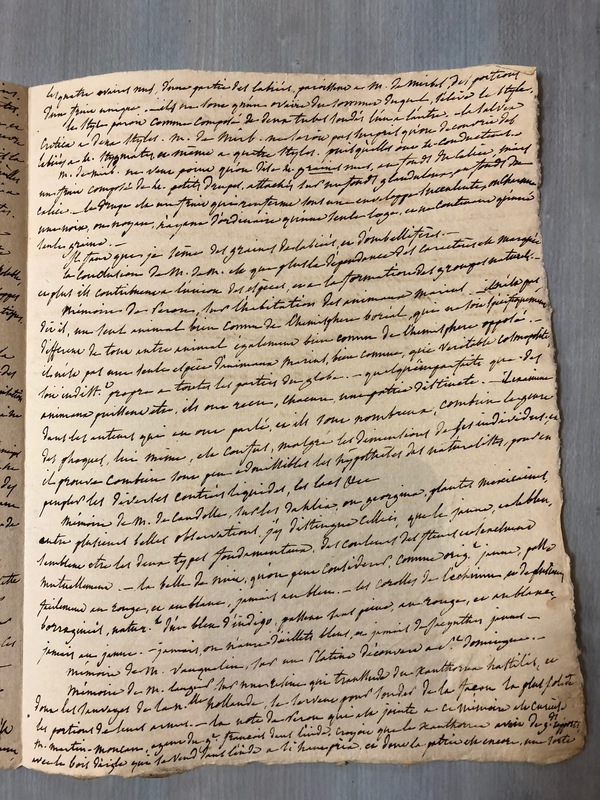 les quatre ovaires nus, d'une partie des labiées, paroissent a M. de Mirbel des portions
d'un fruit unique. - ils ne sont qu'un ovaire du sommet duquel s'élève le style.
le style paroit comme composé de deux tubes soudés l'un a l'autre. - la salvia
a deux styles. M. de Mirb. ne seroit pas surpris qu'on découvrit des
labiées a 4 stygmates et même a quatre styles, puisqu'elles ont 4 conducteurs.
M. de Mirb. ne veut point qu'on dise 4 graines nues, au fond du calice, mais
un fruit composé de 4 petits drupes, attachés sur un fond glanduleux au fond du
calice. - le drupe est un fruit qui renferme sous une enveloppe succulente,
une noix, ou noyau, n'ayant d'ordinaire qu'une seule loge, et ne contenant qu'une
seule graine. -
Il faut que je sème des grains de labiées, et d'ombellifères. -
la conclusion de M. de M. est que plus la dépendance des caractères est marquée
et plus ils contribuent a l'union des espèces, et a la formation des groupes naturels. -
Mémoire de Peron, sur l'habitation des animaux marins. - il n'est pas
dit il, un seul animal bien connu de l'hemisphere boreal, qui ne soit spécifiquement
différent de tout autre animal également bien connu de l'hemisphere opposé. -
il n'est pas une seule espèce d'animaux marins, bien connue, qui, véritable cosmopolite,
soit indist.t propre a toutes les parties du globe. - quelqu'imparfaits que des
animaux puissent être, ils ont reçu, chacun, une patrie distincte. - L'examen
dans les auteurs qui en ont parlé, et ils sont nombreux, combien le genre
des phoques, lui même, est confus, malgré les dimensions de ses individus, et
prouve combien sont peu admissibles les hypotheses des naturalistes, pour
peupler les diverses contrées liquides, les lacs &c
Mémoire de M. de Candolle, sur les dahlia, ou georgina, plantes mexicaines,
entre plusieurs belles observations, j'y distingue celleci, que le jaune, et le bleu,
semblent être les deux types fondamentaux, des couleurs des fleurs et s'excluent
mutuellement. - la belle de nuit, qu'on peut considérer, comme orig.t jaune, passe
facilement au rouge, et au blanc, jamais au bleu. - les corolles de l'echium, et de
borraginées, natur.t d'un bleu d'indigo, passent sans peine, au rouge, et au blanc,
jamais au jaune. - jamais, on n'aura d'œillets bleus, et jamais de jacynthes jaunes. -
Mémoire de M. Vauquelin, sur un Platine découvert a S.t Domingue. -
Mémoire de M. Laugier sur une résine qui transude du xanthorea hastilis, et
dont les sauvages de la n.lle hollande, se servent pour souder de la façon la plus solide
les portions de leurs armes. - la note de Peron qui est jointe a ce mémoire est curieuse
M. Martin-Moncam, agent du g.t français dans l'inde, croyait que le xanthorea avoit de g.ds rapports
avec le bois d'aigle qui se vend dans l'inde a si haut prix, et dont la patrie est encore, une sorte